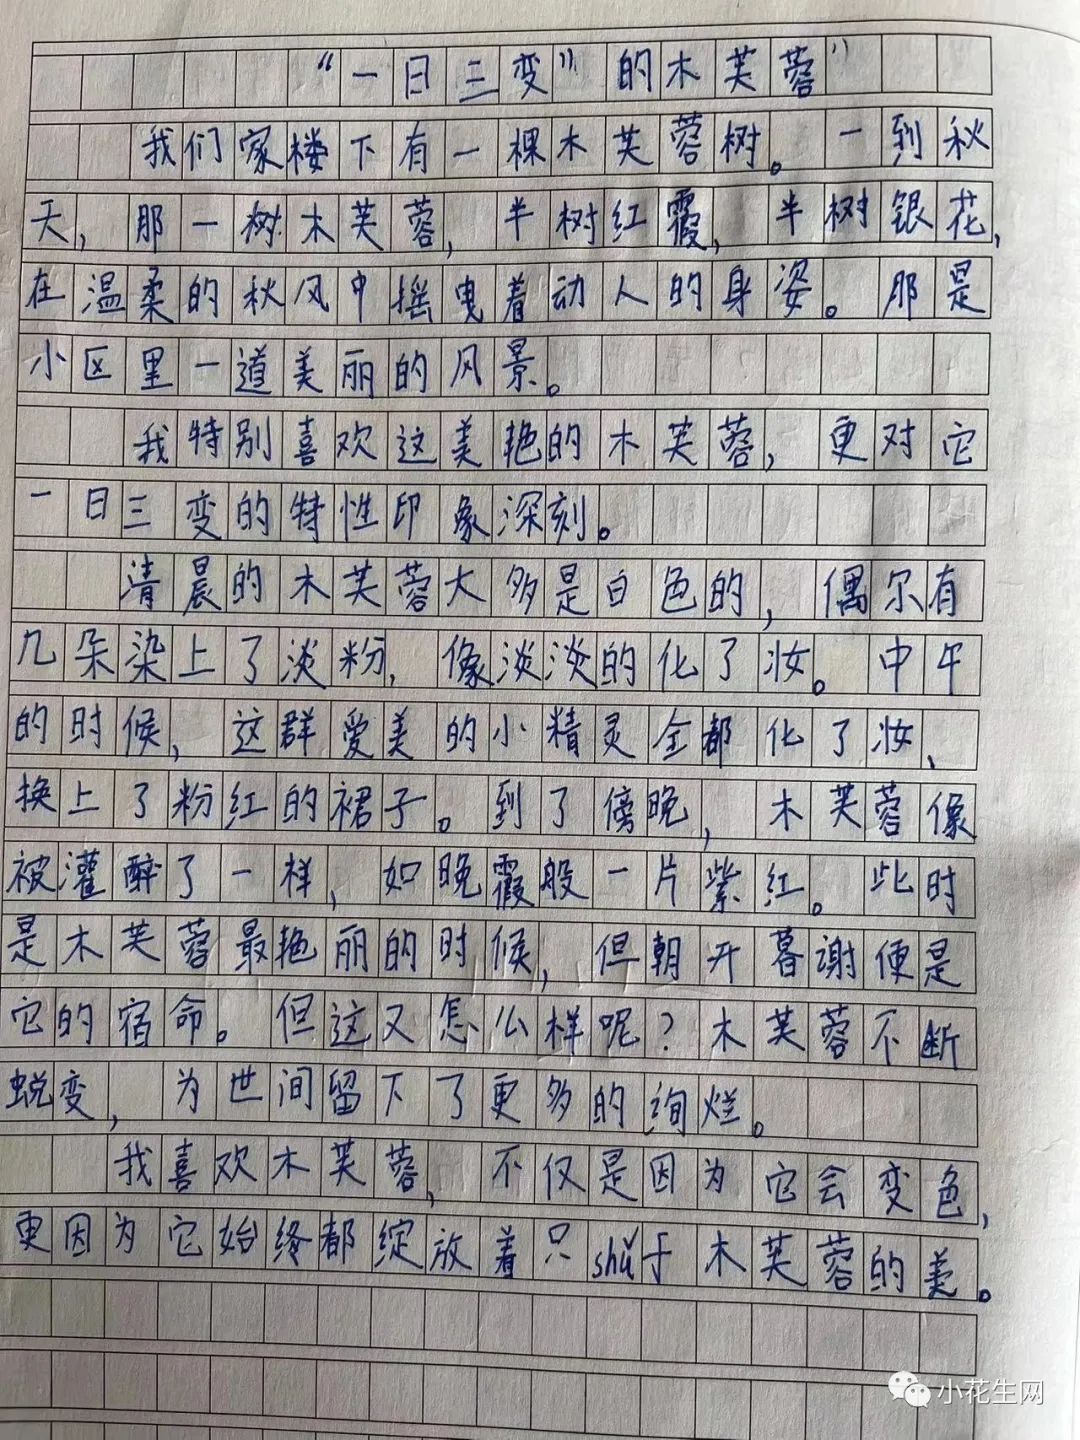 “一日三变”的木芙蓉”
我们家楼下有一棵木芙蓉树。一到秋
天，那一树木芙蓉，半树红霞，半树银花，
在温柔的秋风中摇曳着动人的身姿。那是
小区里一道美丽的风景。
我特别喜欢这美艳的木芙蓉，更对它
一日三变的特性印象深刻。
清晨的木芙蓉大多是白色的，偶尔有
几朵染上了淡粉，像淡淡的化了妆。中午
的时候，这群爱美的小精灵全都化了妆、
换上了粉红的裙子。到了傍晚，木芙蓉像
被灌醉了一样，如晚霞般一片紫红。此时
是木芙蓉最艳丽的时候，但朝开暮谢便是
它的宿命。但这又怎么样呢？木芙蓉不断
蜕变，为世间留下了更多的绚烂。
我喜欢木芙蓉，不仅是因为它会变色，
更因为它始终都绽放着只shǔ于木芙蓉的美。
小花生网